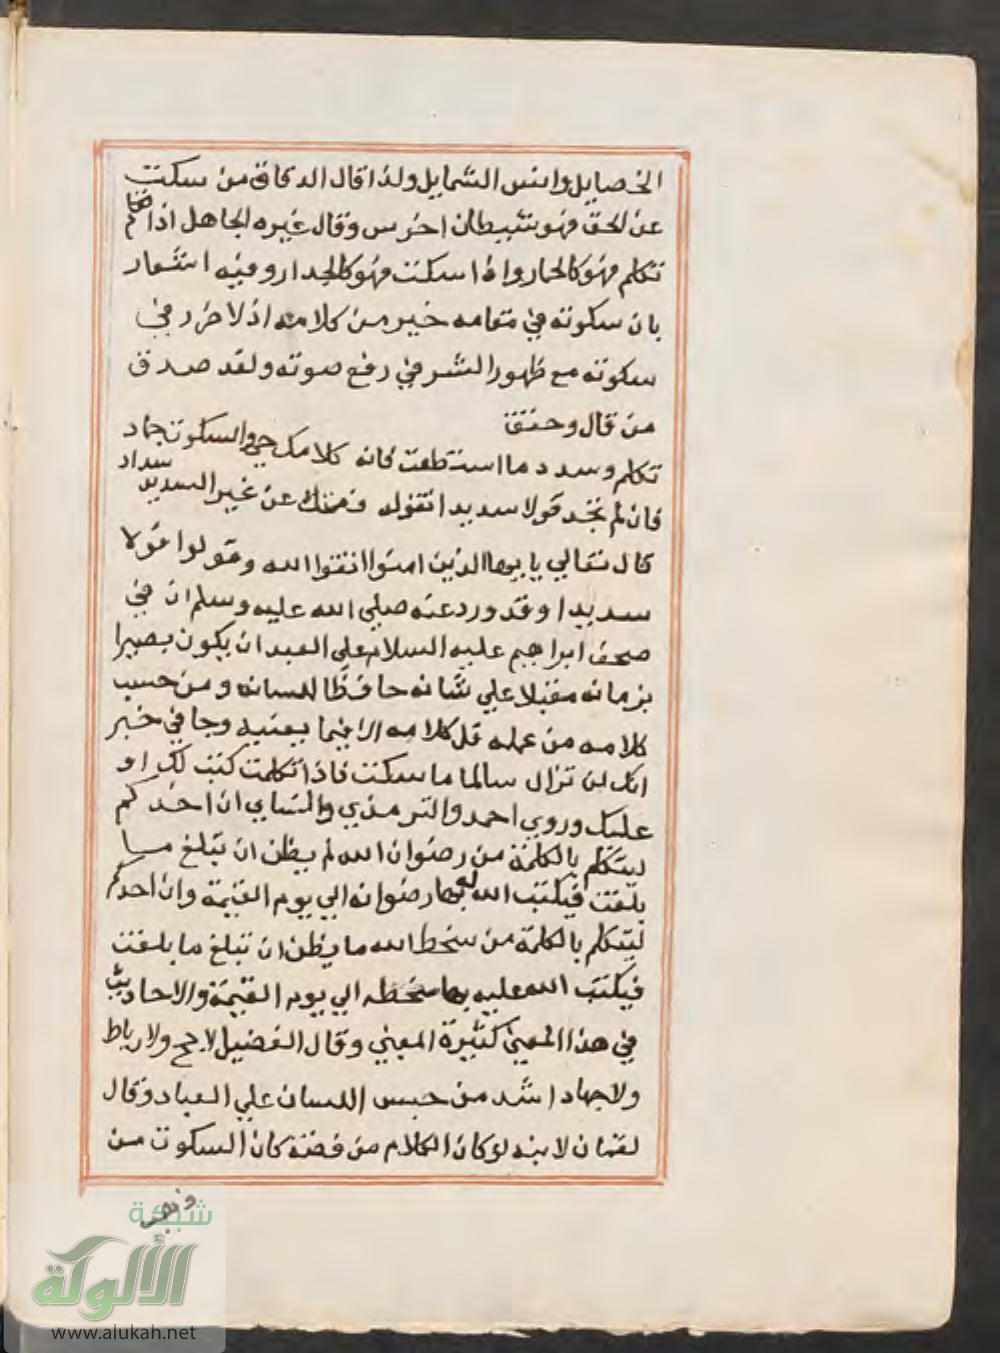 الخصايل وانس الشمايل ولذا قال الدقاق من سكت
عن لحق فهو شيطان اخرس وقال غيره الجاهل اذا
تتكلم فهو كالحمار واذا سكت فهو كالجدار وفيه استشعار
بان سكوته في مقامه خير من كلامه اذ لا ضرر في
سكوته مع ظهور الشر في رفع صوته ولقد صدق
من قال وحقق
تكلم وسدد ما استطعت فانه كلامك حي والسكوت جماد
فان لم تجد قولا سديدا تقوله فصمتك عن غير السديد سداد
قال تعالي يا ايها الذين امنوا اتقوا الله وقولوا قولا
سديدا وقد ورد عنه صلي الله عليه وسلم ان في
صحف ابراهيم عليه السلام علي العبد ان يكون بصيرا
بزمانه مقبلا علي شانه حافظا للسانه ومن حسب
كلامه من عمله قل كلامه الا فيما يعنيه وجا في خبر
انك لن تزال سالما ما سكت فاذا تكلمت كتب لك او
عليك وروي احمد والترمذي والنساي ان احدكم
ليتكلم بالكلمة من رضوان الله لم يظن ان تبلغ ما
بلغت فيكتب الله له بها رضوانه الي يوم القيمة وان احدكم
ليتكلم بالكلمة من سخط الله ما يظن ان تبلغ ما بلغت
فيكتب الله عليه بها سخطه الي يوم القيمة والاحاديث
في هذا المعني كثيرة المعني وقال الفضيل لا حج ولا رباط
ولا جهاد اشد من حبس اللسان علي العباد وقال
لقمان لابنه لو كان الكلام من فضة كان السكوت من
ذهب
شبكة
الألوكة
www.alukah.net